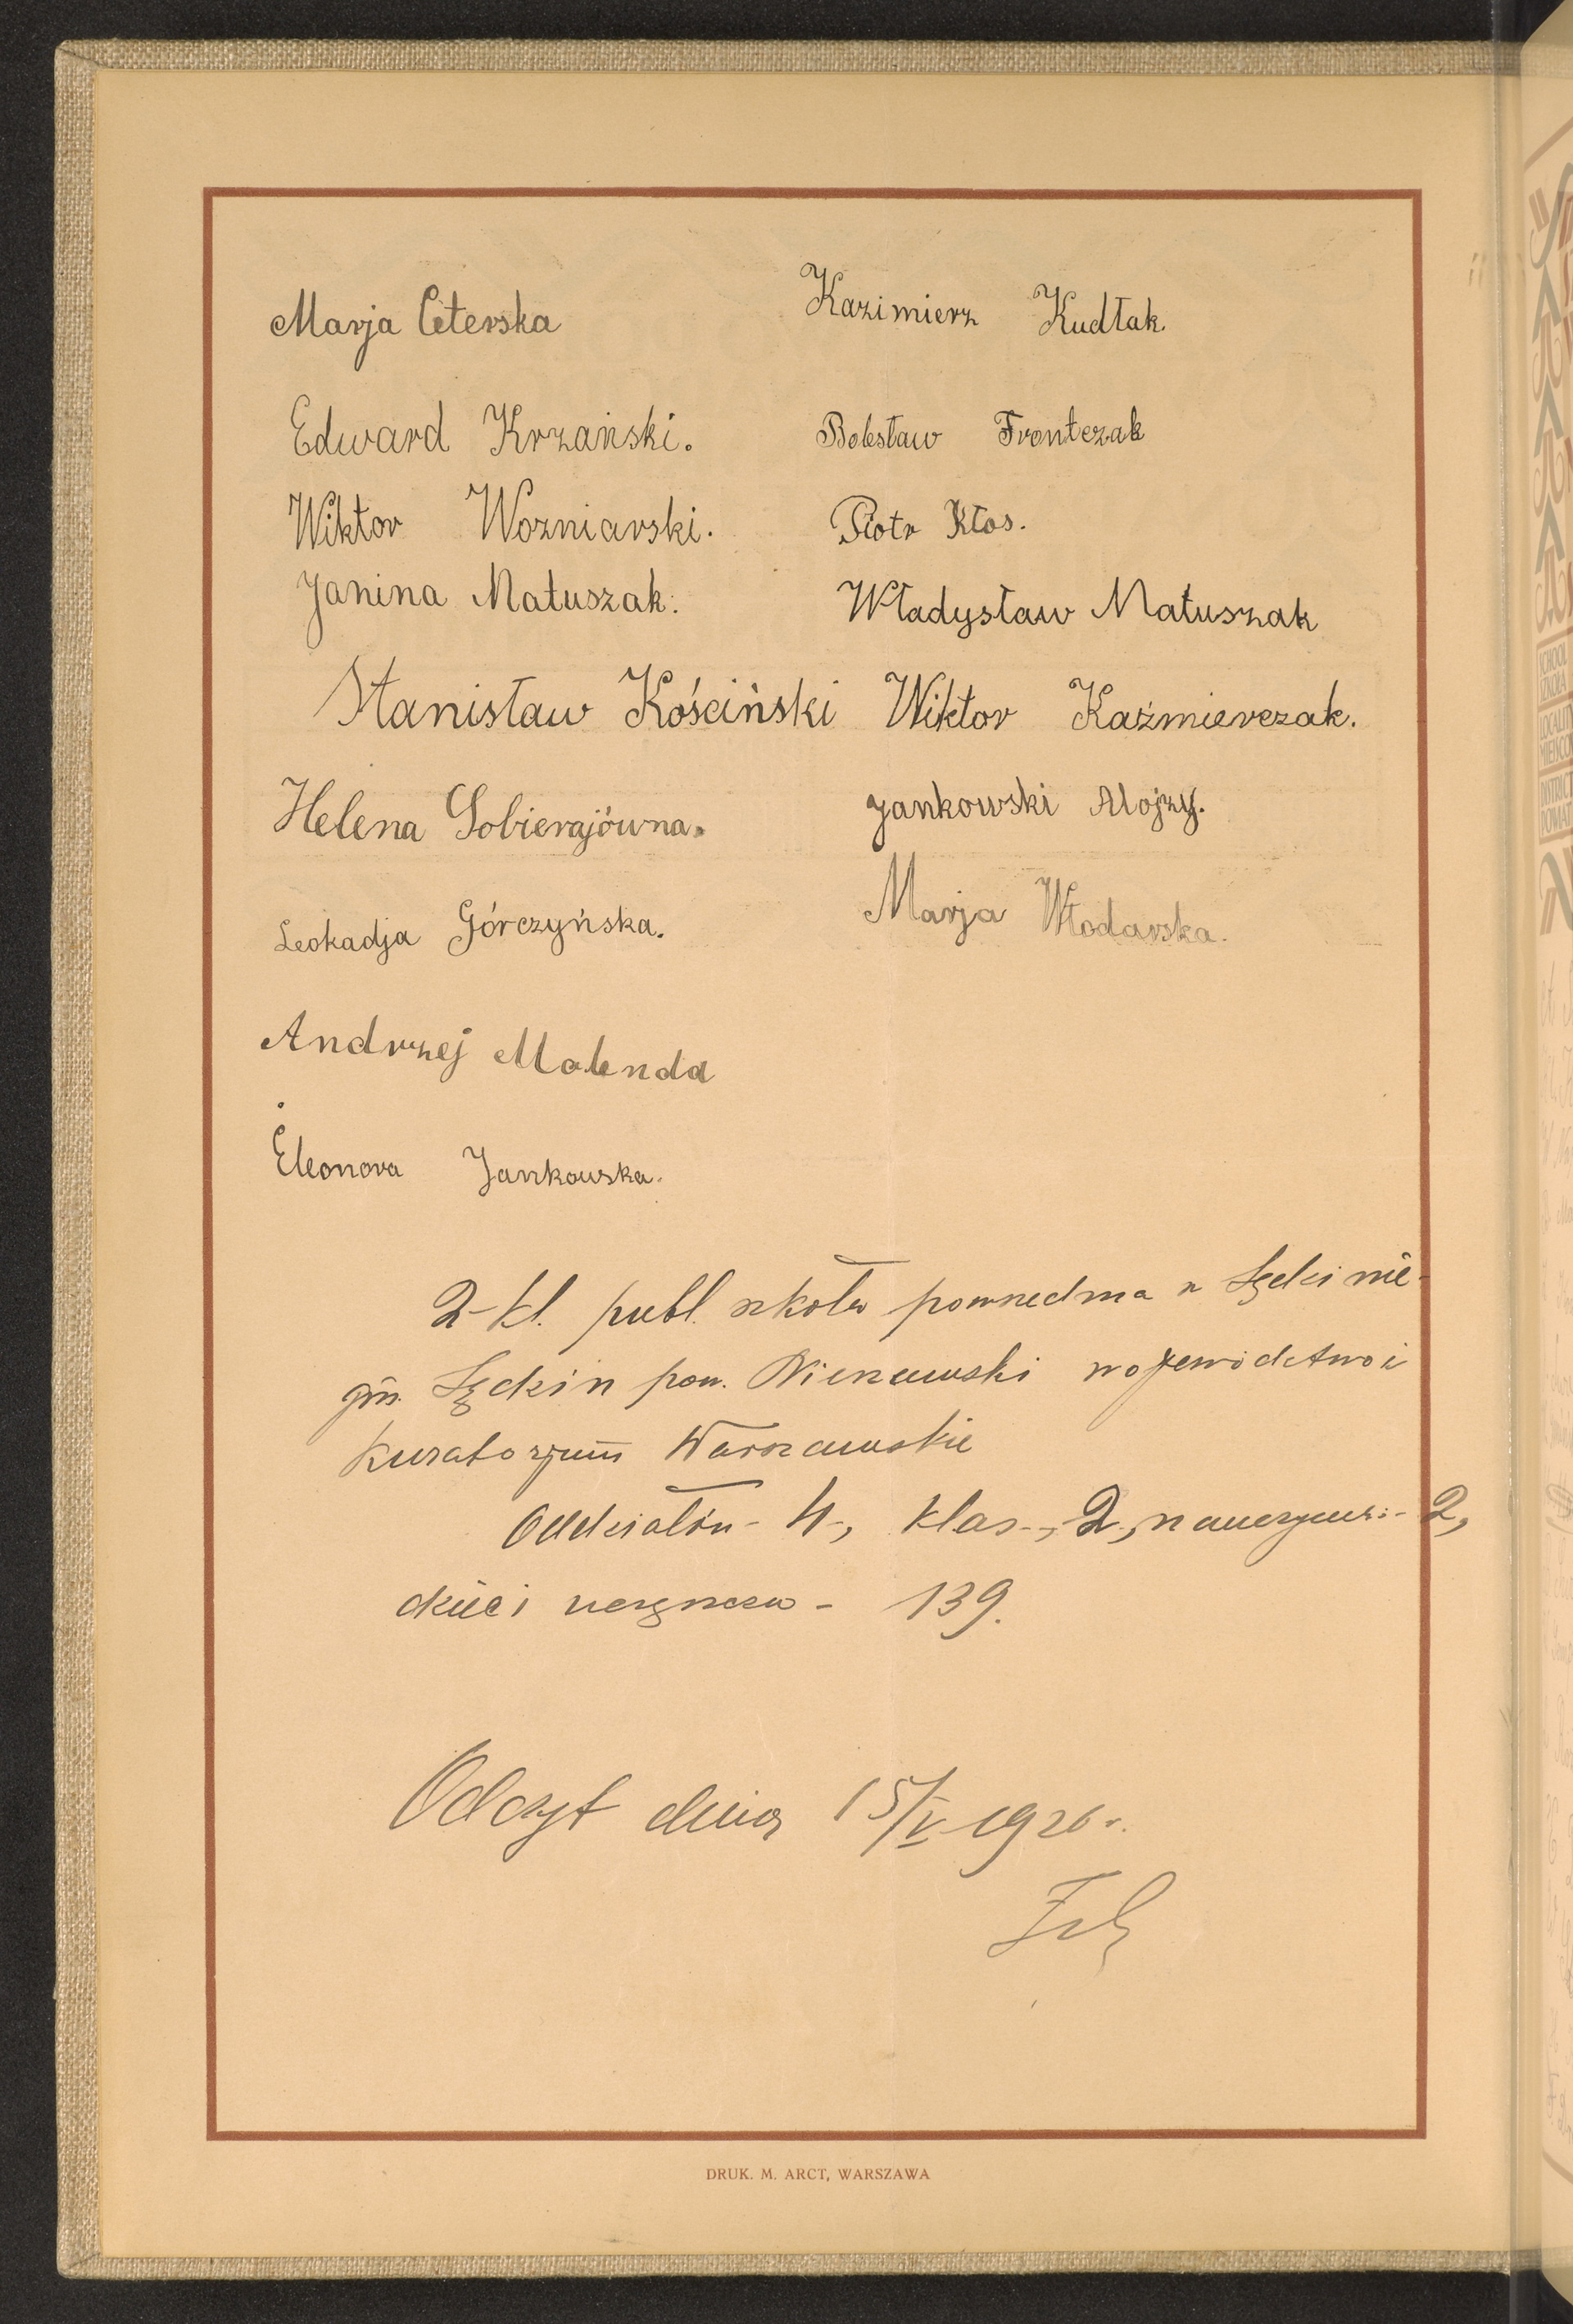 Marja Ceterska
Kazimierz Kudłak.
Edward Krzański.
Bolesław Frontczak
Wiktor Wozniarski.
Piotr Kłos.
Janina Matuszak.
Władysław Matuszak
Stanisław Kościński
Wiktor Kaźmierczak.
Helena Sobierajówna.
Jankowski Alojzy.
Leokadja Górczyńska.
Marja Włodarska.
Andrzej Malenda
Eleonora Jankowska.
2-kl. publ. szkoła powszechna w Sędzinie
gm. Sędzin pow. Nieszawski województwo i
Kuratorjum Warszawskie
Oddziałów - 4-, klas -, 2, nauczyciel: - 2,
dzieci uczęszcza - 139.
Odczyt dnia 15/V 1926 r.
DRUK. M. ARCT, WARSZAWA
SCHOOL
SZKOŁA